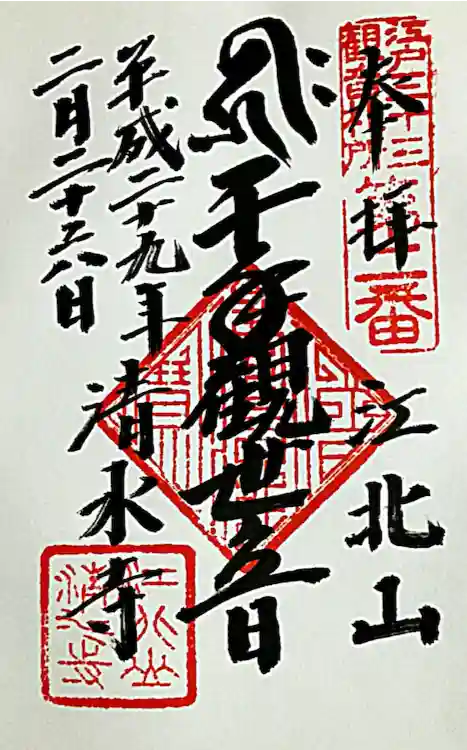 奉拝
江北山
江戸三十三
観音札所
第二番
千手観世音
平成二十九年
二月二十六日
清水寺